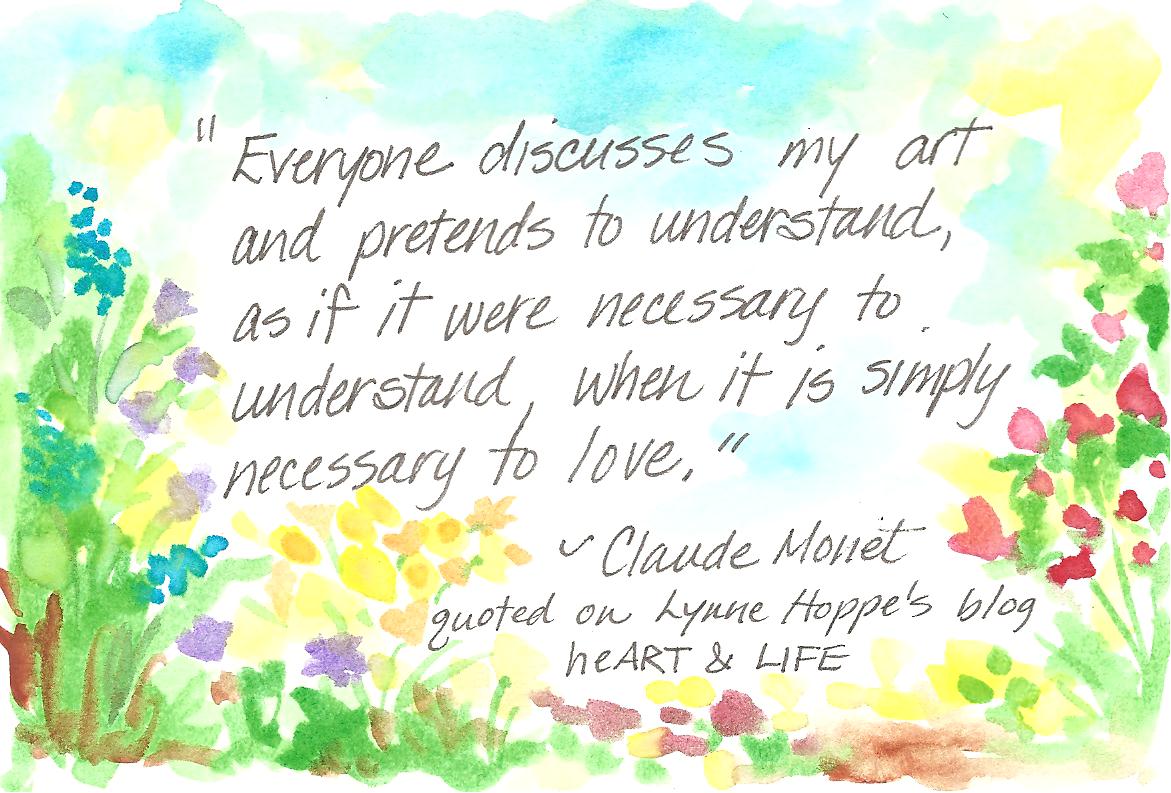 "Everyone discusses my art
and pretends to understand,
as if it were necessary to
understand, when it is simply
necessary to love."
~ Claude Monet
quoted on Lynne Hoppe's blog
heART & LIFE